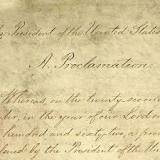 By President of the United States
A. Proclamation.
Whereas, on the twenty second
ber, in the year of our Lord
hundred and sixty two, a procl
issued by the President of the Un